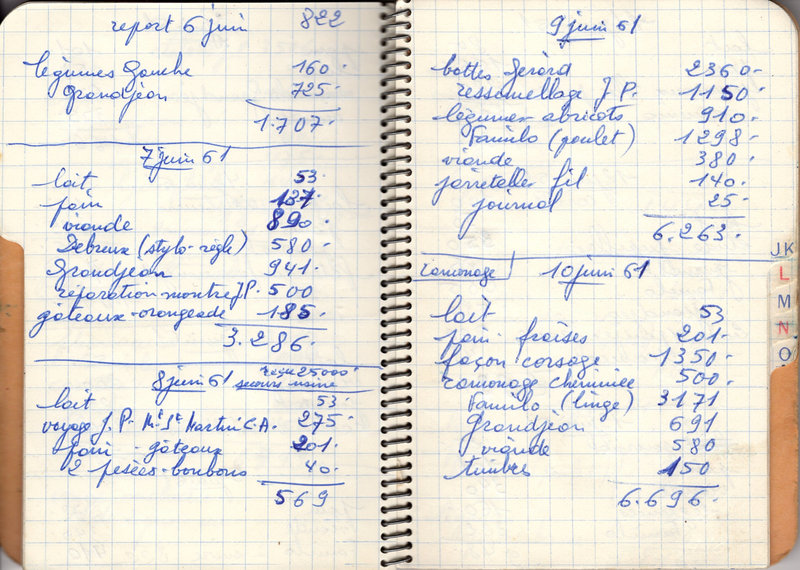 report 6 juin 822
légumes Gauche 160.
Grandjean 725.
1.707.
7 juin 61
lait 53.
pain 137.
viande 890.
Debreux (stylo-règle) 580.
Grandjean 941.
réparation montre J P. 500
gâteaux-orangeade 185.
3.286.
8 juin 61 reçu 25000
secours usine
lait 53.
voyage J. P. Mt St Martin C.A. 275.
pain - gâteaux 201.
2 pesées-bonbons 40.
569
9 juin 61
bottes Gérard 2360.-
ressemellage J P. 1150.
légumes-abricots 910.
Familo (poulet) 1298.
viande 380.
jarretelles fil 140.
journal 25.
6.263.
ramonage 10 juin 61
lait 53
pain fraises 201.
façon corsage 1350.
ramonage cheminée 500.
Familo (linge) 3171
Grandjean 691
viande 580
timbres 150
6.696.
JK
L
M
N
O